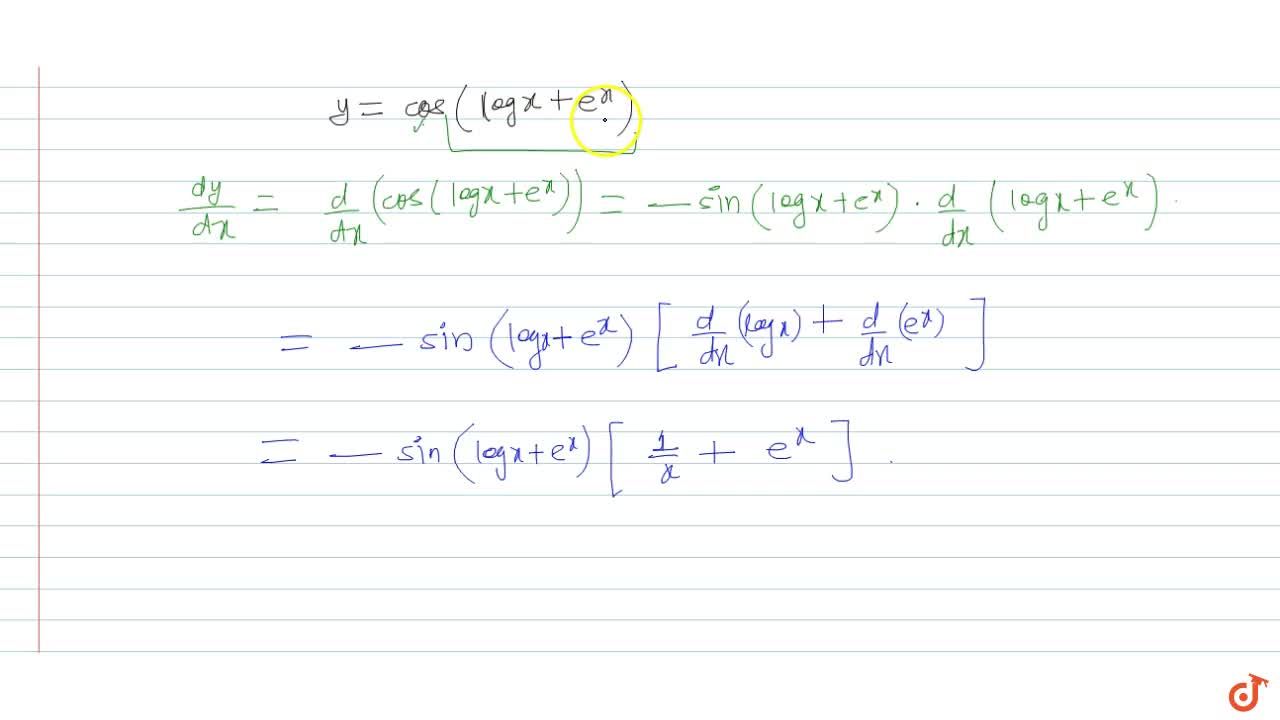 y = cos(logx + e^x)
dy/dx = d/dx (cos(logx + e^x)) = - sin(logx + e^x) . d/dx (logx + e^x) .
= - sin(logx + e^x) [ d/dx (logx) + d/dx (e^x) ]
= - sin(logx + e^x) [ 1/x + e^x ] .